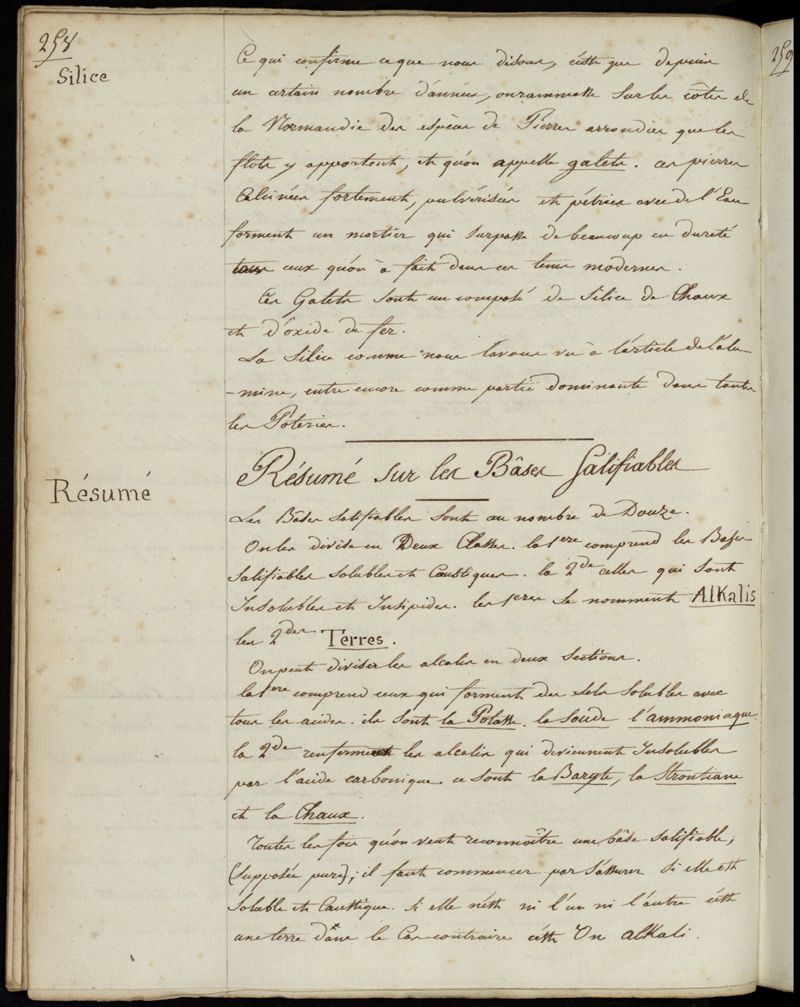 258
Silice
Ce qui confirme ce que nous disons, c'est que depuis
un certain nombre d'années, on rammasse sur les côtes de
la Normandie des espèces de Pierres arrondies que les
flots y apportent, et qu'on appelle galets. ces pierres
Calcinées fortement, pulvérisées et pétries avec de l'Eau
forment un mortier qui surpasse de beaucoup en dureté
tous ceux qu'on à fait dans ces tems modernes.
Ces Galets sont un composé de Silice de Chaux
et d'oxide de fer.
La Silice comme nous l'avons vu à l'article de l'alu
-mine, entre encore comme partie dominante dans toutes
les Poteries.
Résumé
Résumé sur les Bâses Salifiables
Les Bâses Salifiables sont au nombre de Douze.
On les divise en Deux Classes. la 1ere comprend les Bases
Salifiables solubles et Caustiques. la 2de celles qui sont
Insolubles et Insipides. les 1eres se nomment Alkalis
les 2des Terres.
On peut diviser les alcalis en deux sections.
la 1ere comprend ceux qui forment des sels solubles avec
tous les acides. ils sont la Potasse. la Soude l'ammoniaque
la 2de renferment les alcalis qui deviennent Insolubles
par l'acide carbonique ce sont la Baryte, la Strontiane
et la Chaux.
Toutes les fois qu'on veut reconnoître une bâse salifiable,
(supposée pure); il faut commencer par s'assurer si elle est
Soluble et Caustique. Si elle n'est ni l'un ni l'autre c'est
une terre dans le Cas contraire c'est Un alKali.
259